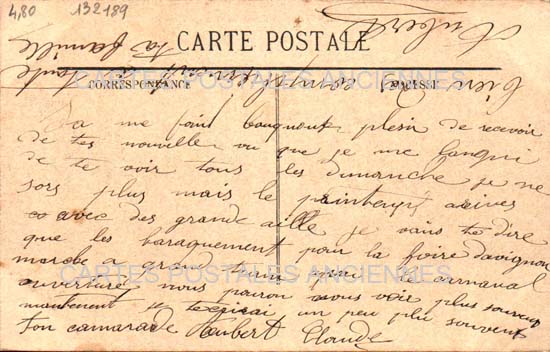 4,80 132189
CARTE POSTALE
CORRESPONDANCE ADRESSE
CARTES POSTALES ANCIENNES
Sa me faint plesir de recevoir
de tes nouvelle vu que je me langui
de te voir tous les dimanche je ne
sors plus mais le printemps arives
avec des grande aille je vais te dire
que les baraquement pour la foire davignon
marche a grand pour le carnaval
CARTES POSTALES ANCIENNES
ouverture nous pouron nous voir plus souvent
mantenent je un peu plus souvent
ton camarade Aubert Claude
bien a
toute ta famille
Aubert